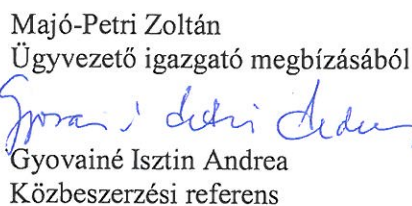 Majó-Petri Zoltán
Ügyvezető igazgató megbízásából
Gyovainé Isztin Andrea
Közbeszerzési referens